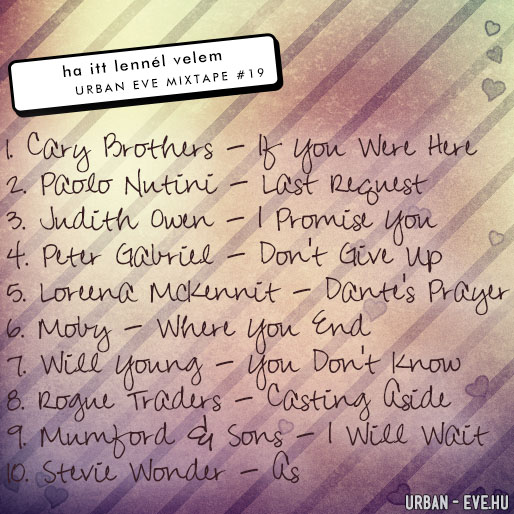 ha itt lennél velem
URBAN EVE MIXTAPE #19
1. Cary Brothers – If You Were Here
2. Paolo Nutini – Last Request
3. Judith Owen – I Promise You
4. Peter Gabriel – Don't Give Up
5. Loreena McKennit – Dante's Prayer
6. Moby – Where You End
7. Will Young – You Don't Know
8. Rogue Traders – Casting Aside
9. Mumford & Sons – I Will Wait
10. Stevie Wonder – As
URBAN - EVE.HU